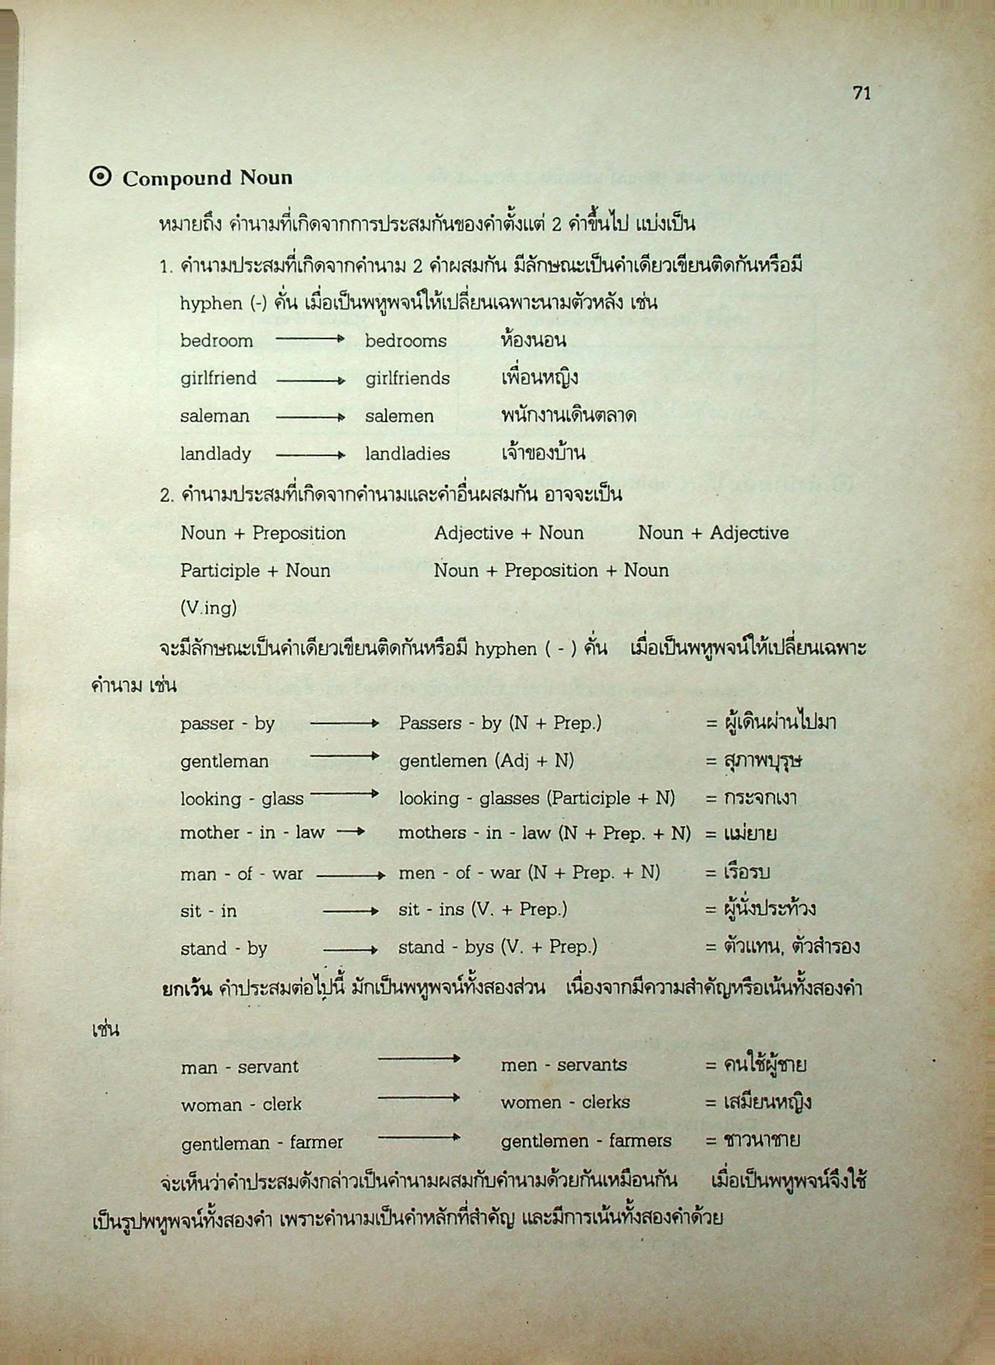 71
Compound Noun
หมายถึง คำนามที่เกิดจากการประสมกันของคำตั้งแต่ 2 คำขึ้นไป แบ่งเป็น
1. คำนามประสมที่เกิดจากคำนาม 2 คำผสมกัน มีลักษณะเป็นคำเดียวเขียนติดกันหรือมี
hyphen (-) คั่น เมื่อเป็นพหูพจน์ให้เปลี่ยนเฉพาะนามตัวหลัง เช่น
bedroom → bedrooms ห้องนอน
girlfriend → girlfriends เพื่อนหญิง
saleman → salemen พนักงานเดินตลาด
landlady → landladies เจ้าของบ้าน
2. คำนามประสมที่เกิดจากคำนามและคำอื่นผสมกัน อาจจะเป็น
Noun + Preposition Adjective + Noun Noun + Adjective
Participle + Noun Noun + Preposition + Noun
(V.ing)
จะมีลักษณะเป็นคำเดียวเขียนติดกันหรือมี hyphen ( - ) คั่น เมื่อเป็นพหูพจน์ให้เปลี่ยนเฉพาะ
คำนาม เช่น
passer - by → Passers - by (N + Prep.) = ผู้เดินผ่านไปมา
gentleman → gentlemen (Adj + N) = สุภาพบุรุษ
looking - glass → looking - glasses (Participle + N) = กระจกเงา
mother - in - law → mothers - in - law (N + Prep. + N) = แม่ยาย
man - of - war → men - of - war (N + Prep. + N) = เรือรบ
sit - in → sit - ins (V. + Prep.) = ผู้นั่งประท้วง
stand - by → stand - bys (V. + Prep.) = ตัวแทน, ตัวสำรอง
ยกเว้น คำประสมต่อไปนี้ มักเป็นพหูพจน์ทั้งสองส่วน เนื่องจากมีความสำคัญหรือเน้นทั้งสองคำ
เช่น
man - servant → men - servants = คนใช้ผู้ชาย
woman - clerk → women - clerks = เสมียนหญิง
gentleman - farmer → gentlemen - farmers = ชาวนาชาย
จะเห็นว่าคำประสมดังกล่าวเป็นคำนามผสมกับคำนามด้วยกันเหมือนกัน เมื่อเป็นพหูพจน์จึงใช้
เป็นรูปพหูพจน์ทั้งสองคำ เพราะคำนามเป็นคำหลักที่สำคัญ และมีการเน้นทั้งสองคำด้วย